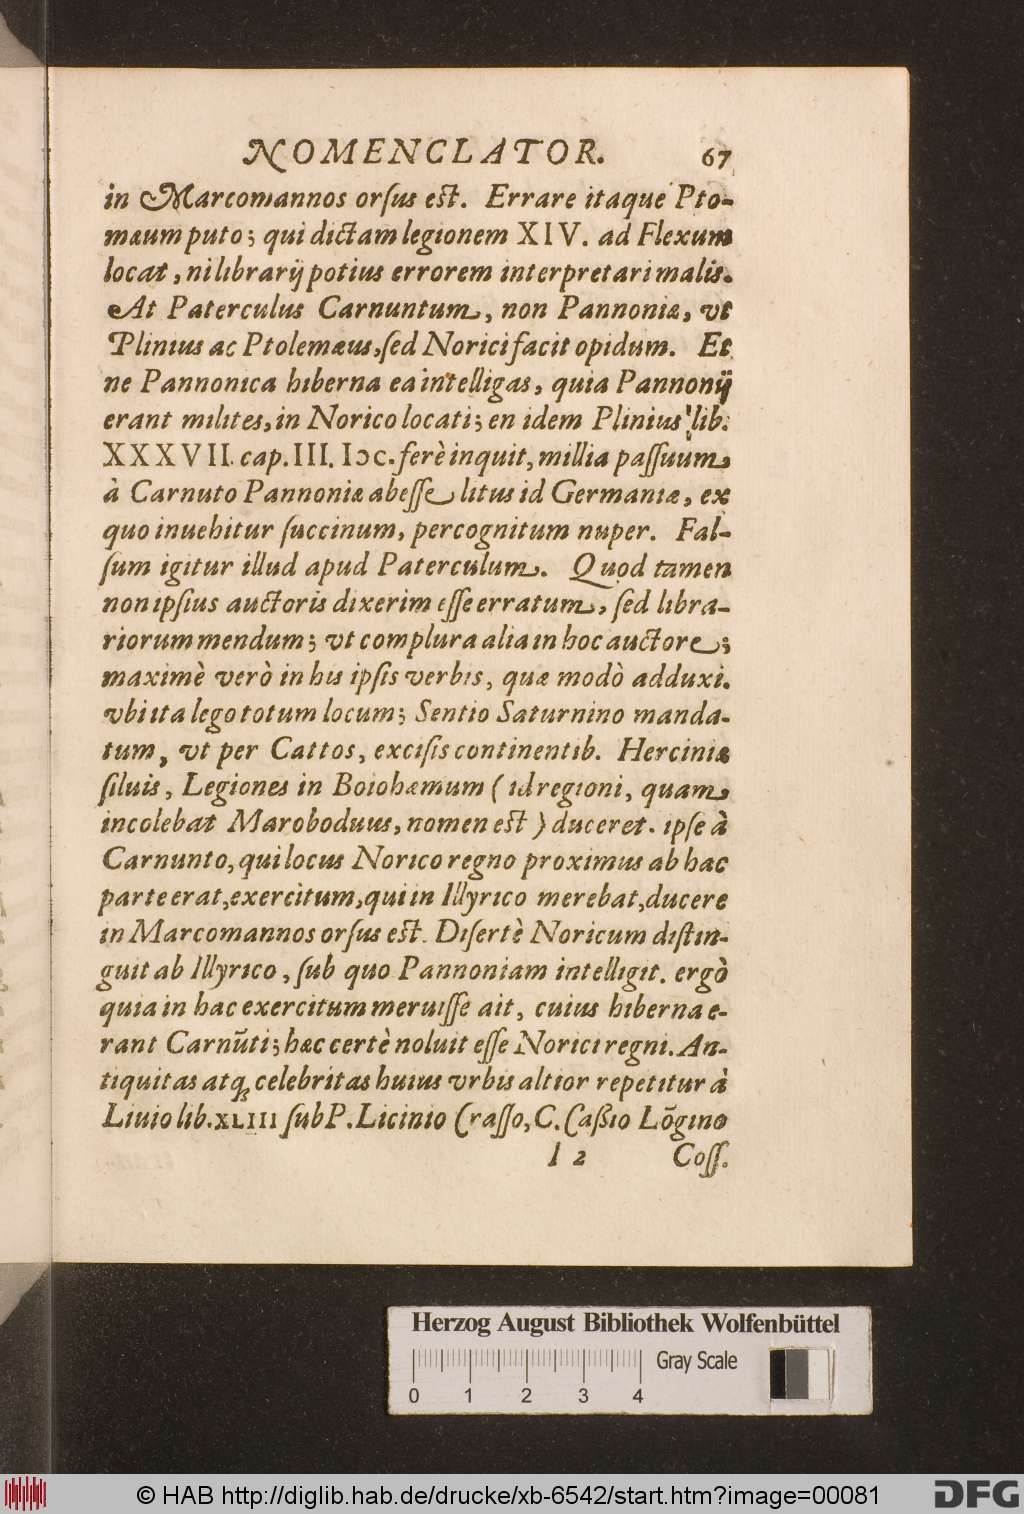 NOMENCLATOR. 67
in Marcomannos orſus est. Errare itaque Pto-
mæum puto; qui dictam legionem XIV. ad Flexum
locat, ni librarij potius errorem interpretari malis.
At Paterculus Carnuntum, non Pannoniæ, vt
Plinius ac Ptolemæus, ſed Norici facit opidum. Et
ne Pannonica hiberna ea intelligas, quia Pannonij
erant milites, in Norico locati; en idem Plinius lib.
XXXVII. cap. III. IↃC. ferè inquit, millia paſſuum
à Carnuto Pannoniæ abeſſe litus id Germaniæ, ex
quo inuehitur ſuccinum, percognitum nuper. Fal-
ſum igitur illud apud Paterculum. Quod tamen
non ipſius auctoris dixerim eſſe erratum, ſed libra-
riorum mendum; vt complura alia in hoc auctore;
maximè verò in his ipſis verbis, quæ modò adduxi.
vbi ita lego totum locum; Sentio Saturnino manda-
tum, vt per Cattos, exciſis continentib. Herciniæ
ſiluis, Legiones in Boiohæmum (id regioni, quam
incolebat Maroboduus, nomen est) duceret. ipſe à
Carnunto, qui locus Norico regno proximus ab hac
parte erat, exercitum, qui in Illyrico merebat, ducere
in Marcomannos orſus est. Diſertè Noricum diſtin-
guit ab Illyrico, ſub quo Pannoniam intelligit. ergò
quia in hac exercitum meruiſſe ait, cuius hiberna e-
rant Carnũti; hæc certè noluit eſſe Norici regni. An-
tiquitas atq; celebritas huius vrbis altior repetitur à
Liuio lib. XLIII ſub P. Licinio Craſſo, C. Caßio Lõgino
I 2 Coſſ.
Herzog August Bibliothek Wolfenbüttel
Gray Scale
0 1 2 3 4
© HAB http://diglib.hab.de/drucke/xb-6542/start.htm?image=00081
DFG